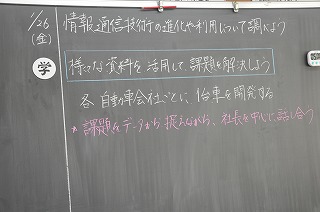 1/26
(金)
情報通信技術の進化や利用について調べよう
学
様々な資料を活用して、課題を解決しよう
各自動車会社ごとに、1台車を開発する
*課題をデータから捉えながら、社長を中心に話し合う